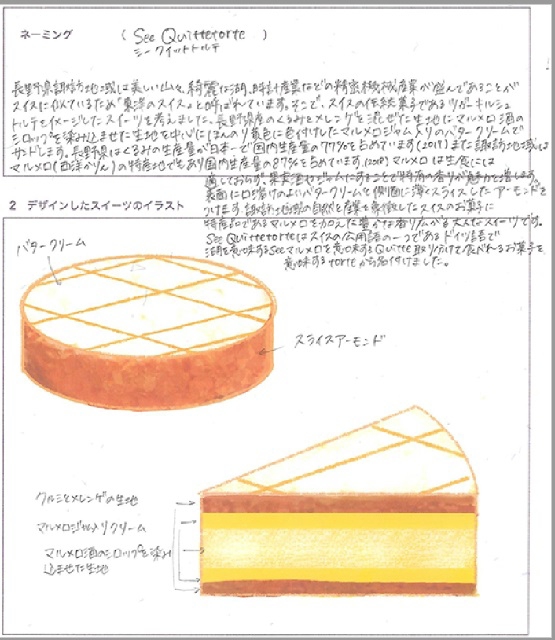 ネーミング ( See Quittetorte )
シークイットトルテ
長野県諏訪地域は美しい山々、綺麗な湖、時計産業などの精密機械産業が盛んであることが
スイスに似ているため"東洋のスイス"と呼ばれています。そこで、スイスの伝統菓子であるツガーキルシュ
トルテをイメージしたスイーツを考えました。長野県産のくるみとメレンゲを混ぜた生地に、マルメロ酒の
シロップを染み込ませた生地を中心にほんのり黄色に色付けしたマルメロジャム入りのバタークリームで
サンドします。長野県はくるみの生産量が日本一で国内生産量の77%を占めています(2017)また諏訪地域は
マルメロ(西洋かりん)の特産地でもあり国内生産量の87%を占めています。(2018)マルメロは生食には
適しておらず、果実酒やジャムにすることで特有の香りが
表面に口溶けのよいバタークリームと側面に薄くスライスしたアーモンドを
つけます。諏訪地域の自然と産業を象徴したスイスのお菓子に
特産品であるマルメロを加えた豊かな香り広がる大人なスイーツです。
See Quittetorteはスイスの公用語の一つであるドイツ語で
湖を意味するSeeマルメロを意味するQuitte取り分けて食べれるお菓子を
意味するtorteから名付けました。
2 デザインしたスイーツのイラスト
バタークリーム
スライスアーモンド
クルミとメレンゲの生地
マルメロジャム入りクリーム
マルメロ酒のシロップを染み
込ませた生地